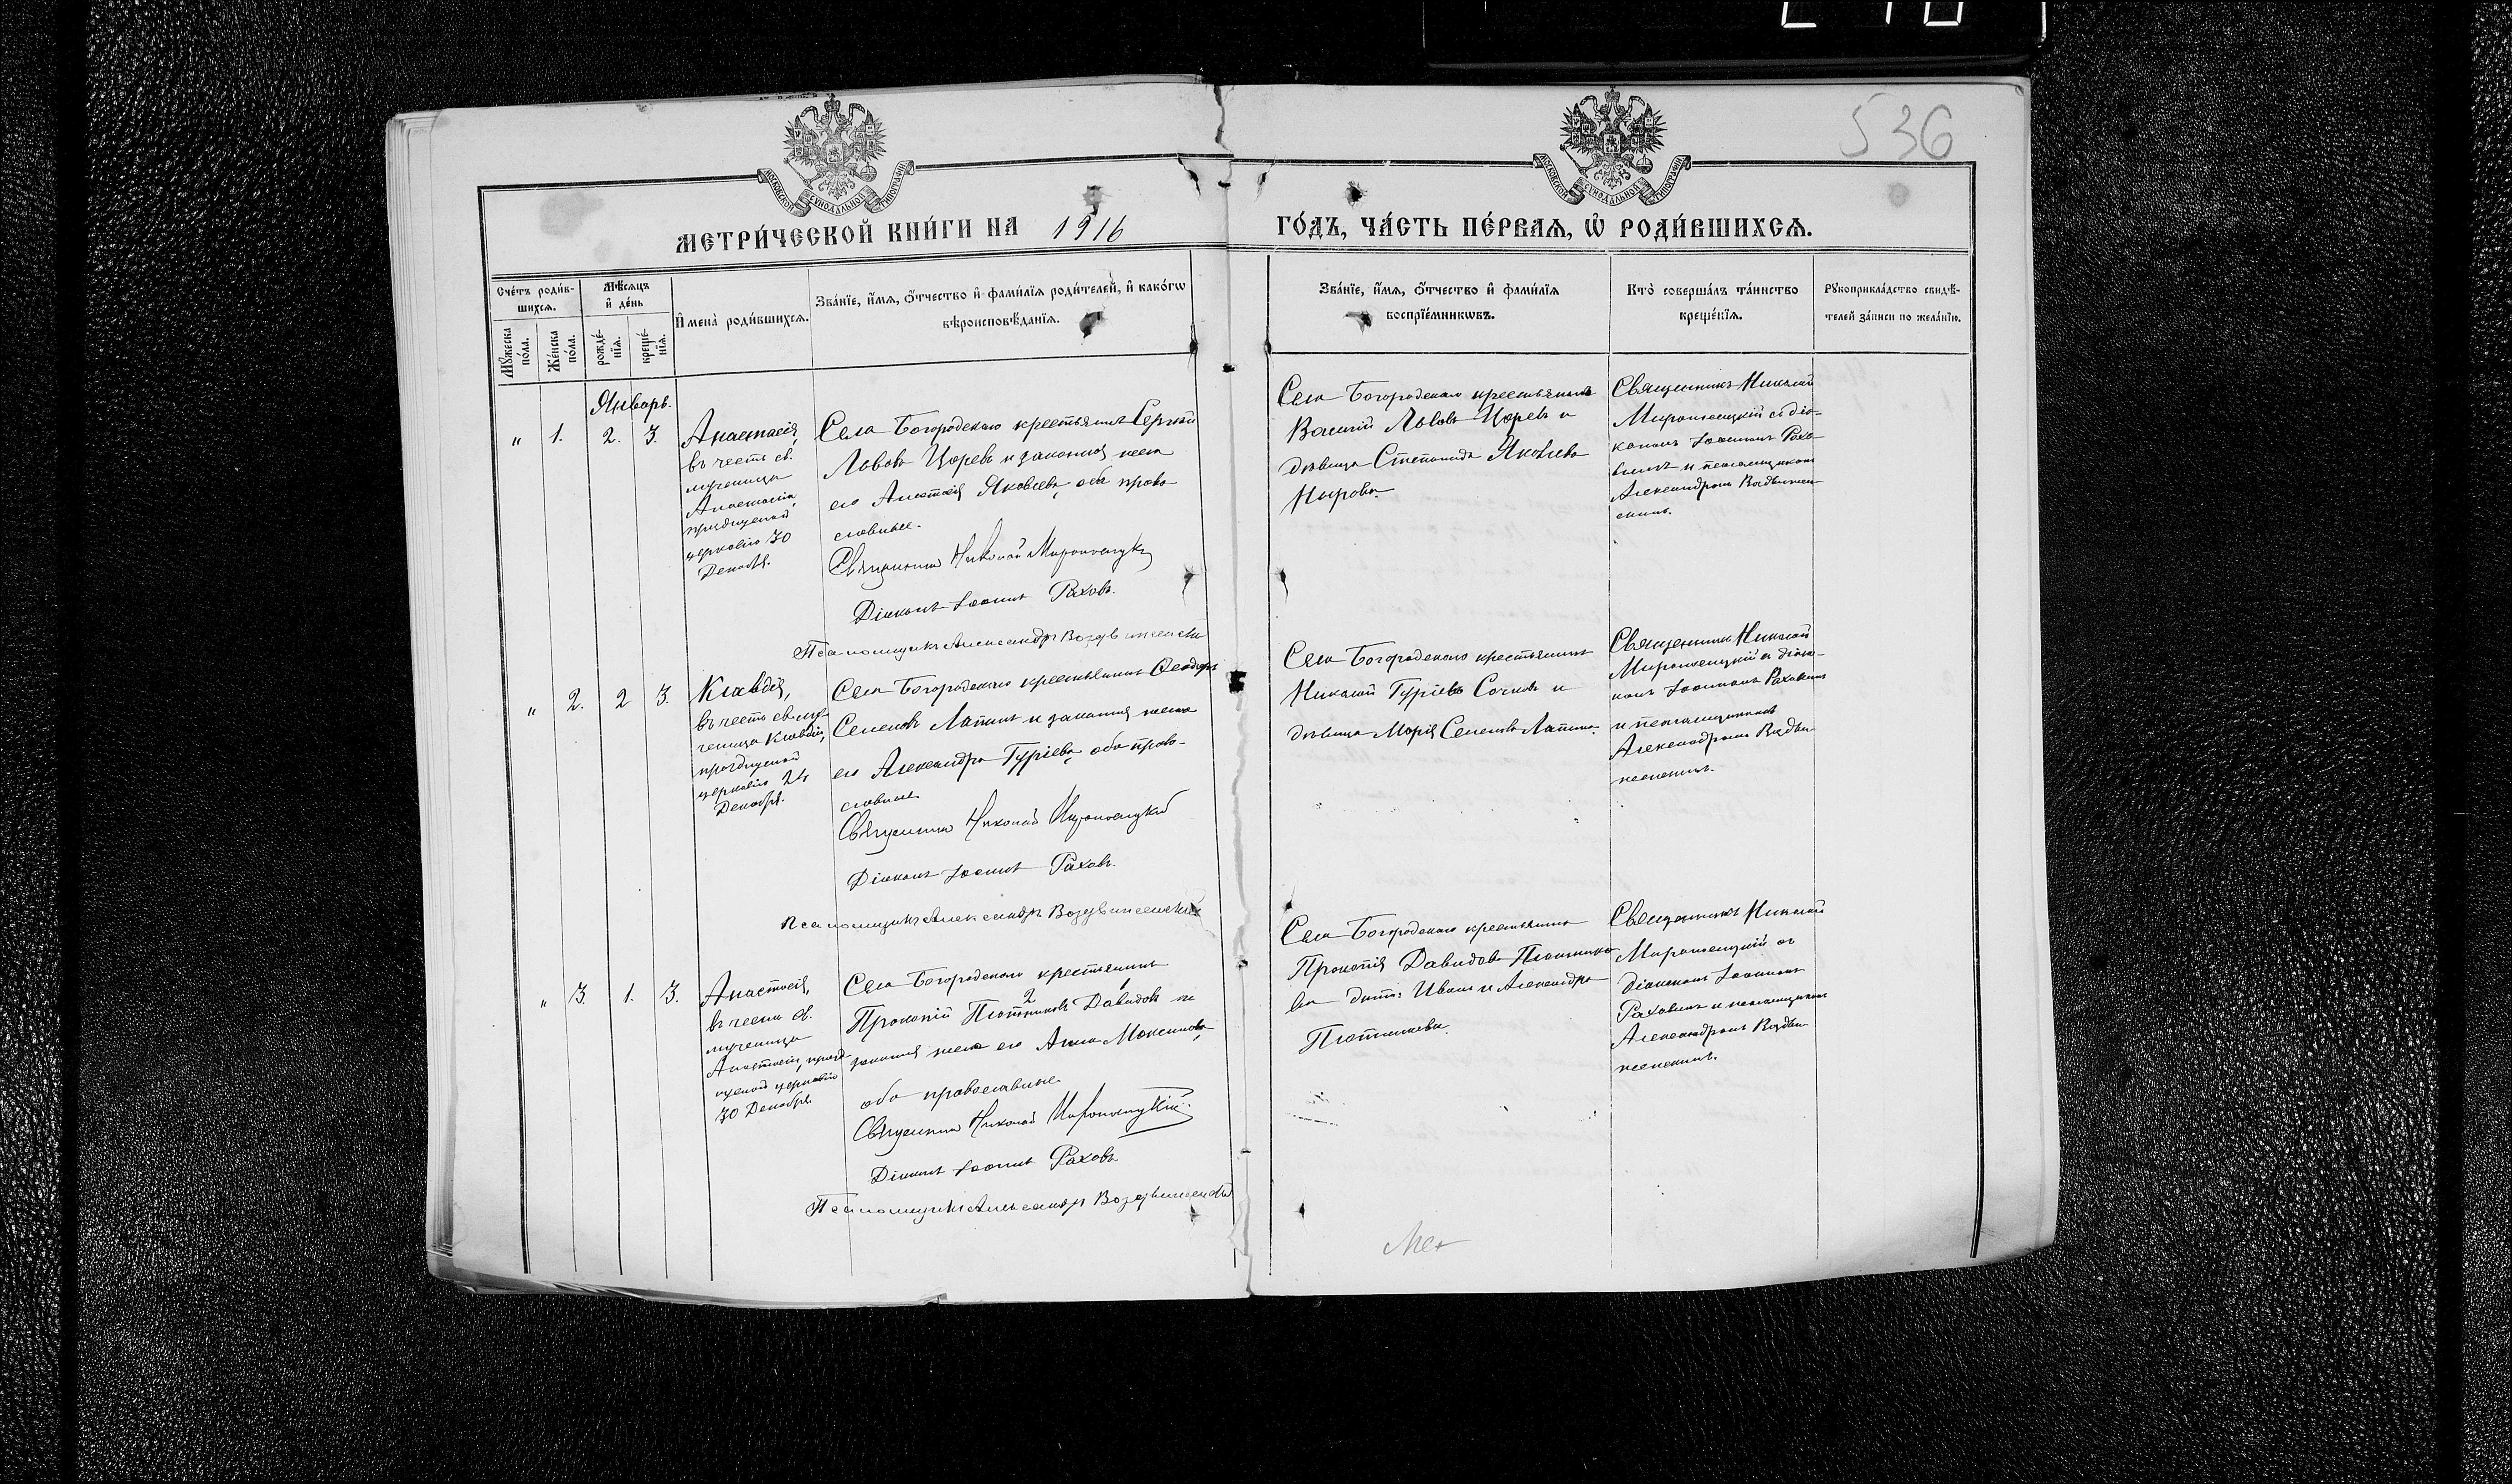 536
МОСКОВСКОЙ СѴНОДАЛЬНОЙ ТИПОГРАФІИ
МОСКОВСКОЙ СѴНОДАЛЬНОЙ ТИПОГРАФІИ
МЕТРИ́ЧЕСКОЙ КНИ́ГИ НА 1916 ГО́ДЪ, ЧА́СТЬ ПЕ́РВАѦ, Ѡ҆ РОДИ́ВШИХСѦ.
Сче́тъ роди́в-
шихсѧ.
Мꙋ́жеска по́ла.
Же́нска по́ла.
Мѣ́сѧцъ и҆ де́нь
рожде́-
нїѧ.
креще́-
нїѧ.
И҆мена̀ роди́вшихсѧ.
Зва́нїе, и҆́мѧ, ѻ҆́тчество и҆ фами́лїѧ роди́телей, и҆ како́гѡ
вѣроисповѣ́данїѧ.
Зва́нїе, и҆́мѧ, ѻ҆́тчество и҆ фами́лїѧ
воспрїе́мникѡвъ.
Кто̀ соверша́лъ та́инство
креще́нїѧ.
Рꙋкоприкла́дство свидѣ́-
телей за́писи по жела́нїю.
Январь.
" 1. 2. 3.
Анастасія,
въ честь св.
мученицы
Анастасіи,
празднуемой
церковію 30
Декабря.
Села Богородскаго крестьянинъ Сергей
Львовъ Царевъ и законная жена
его Анастасія Яковлева, оба право-
славные.
Священникъ Николай Мироносицкій
Діаконъ Іоаннъ Раховъ.
Псаломщикъ Александръ Воздвиженскій
Села Богородскаго крестьянинъ
Василий Львовъ Царевъ и
дѣвица Степанида Яковлева
Священникъ Николай
Мироносицкій съ діа-
кономъ Іоанномъ Рахо-
вымъ и псаломщикомъ
Александромъ Воздвижен-
скимъ.
" 2. 2 3.
Клавдія,
въ честь св. му-
ченицы Клавдіи,
празднуемой
церковію 24
Декабря.
Села Богородскаго крестьянинъ Ѳеодоръ
Семеновъ Лапинъ и законная жена
его Александра Гуріева, оба право-
славные
Священникъ Николай Мироносицкій
Діаконъ Іоаннъ Раховъ.
Псаломщикъ Александръ Воздвиженскій
Села Богородскаго крестьянинъ
Николай Гуріевъ Сочновъ и
дѣвица Марія Семенова Лапина.
Священникъ Николай
Мироносицкій съ діако-
номъ Іоанномъ Раховымъ
и псаломщикомъ
Александромъ Воздви-
женскимъ.
" 3. 1. 3.
Анастасія,
въ честь св.
мученицы
Анастасіи, празд-
нуемой церковію
30 Декабря
Села Богородскаго крестьянинъ
Прокопій Плотниковъ 2 Давидовъ 1 и
законная жена его Анна Максимова,
оба православные.
Священникъ Николай Мироносицкій
Діаконъ Іоаннъ Раховъ
Псаломщикъ Александръ Воздвиженскій
Села Богородскаго крестьянина
Прокопія Давидова Плотнико-
ва дѣти: Иванъ и Александра
Плотниковы.
Священникъ Николай
Мироносицкій съ
діакономъ Іоанномъ
Раховымъ и псаломщикомъ
Александромъ Воздви-
женскимъ.